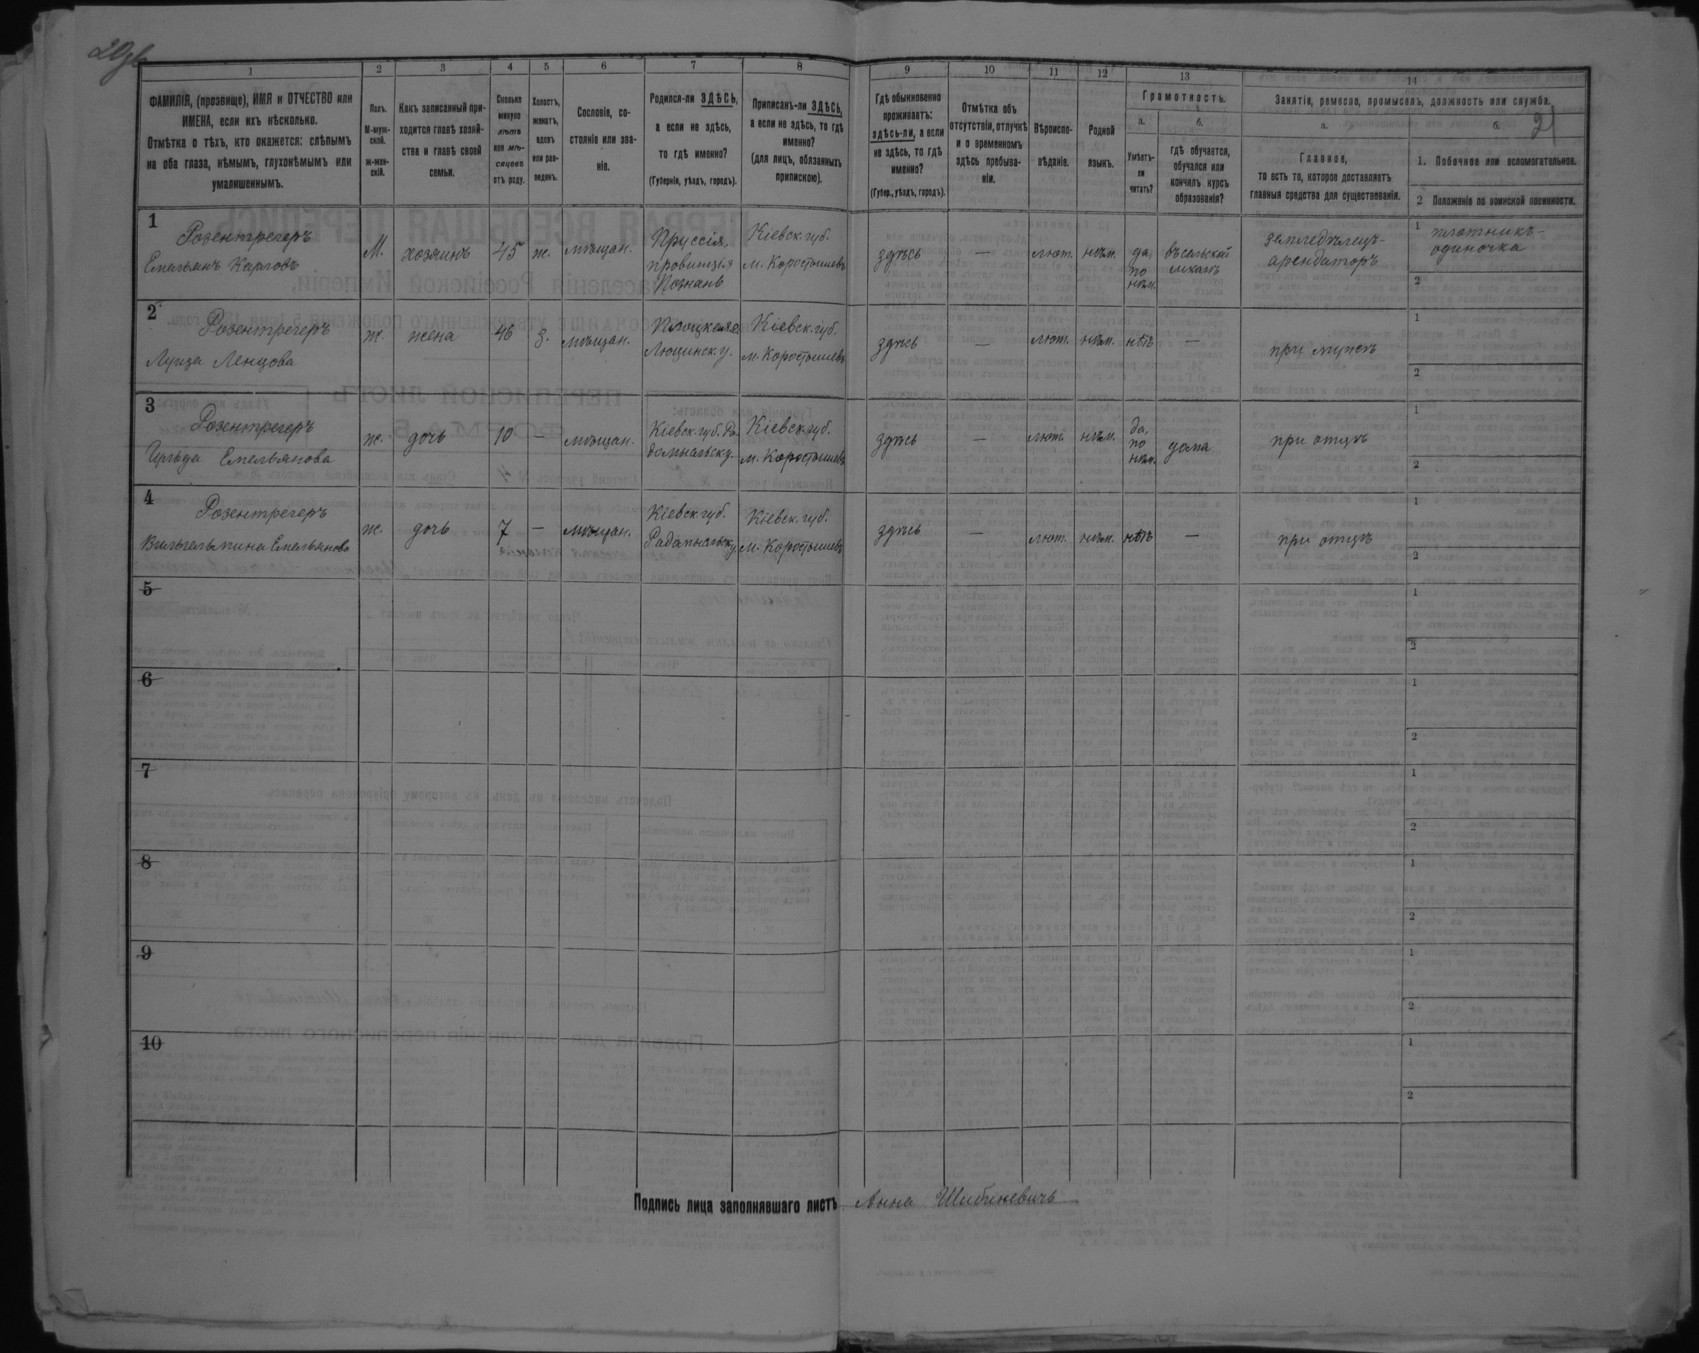 1 2 3 4 5 6 7 8 9 10 11 12 13 14
ФАМИЛІЯ, (прозвище), ИМЯ и ОТЧЕСТВО или
ИМЕНА, если ихъ нѣсколько.
Отмѣтка о тѣхъ, кто окажется: слѣпымъ
на оба глаза, нѣмымъ, глухонѣмымъ или
умалишеннымъ.
Полъ.
М-муж-
ской.
Ж-жен-
скій.
Какъ записанный при-
ходится главѣ хозяй-
ства и главѣ своей
семьи.
Сколько
минуло
лѣтъ
или мѣ-
сяцевъ
отъ роду.
Холостъ,
женатъ,
вдовъ
или раз-
веденъ.
Сословіе, со-
стояніе или зва-
ніе.
Родился-ли ЗДѢСЬ,
а если не здѣсь,
то гдѣ именно?
(Губернія, уѣздъ, городъ).
Приписанъ-ли ЗДѢСЬ,
а если не здѣсь, то гдѣ
именно?
(для лицъ, обязанныхъ
припискою).
Гдѣ обыкновенно
проживаетъ:
здѣсь-ли, а если
не здѣсь, то гдѣ
именно?
(Губер., уѣздъ, городъ).
Отмѣтка объ
отсутствіи, отлучкѣ
и о временномъ
здѣсь пребыва-
ніи.
Вѣроиспо-
вѣданіе.
Родной
языкъ.
Грамотность.
а.
Умѣетъ-
ли
читать?
б.
гдѣ обучается,
обучался или
кончилъ курсъ
образованія?
Занятіе, ремесло, промыселъ, должность или служба.
а.
Главное,
то есть то, которое доставляетъ
главныя средства для существованія.
б.
21
1. Побочное или вспомогательное.
2 Положеніе по воинской повинности.
1
Розентрегеръ
Емельянъ Карловъ
М.
хозяинъ
45
ж.
мѣщан.
Пруссія,
провинція
Познань
Кіевск. губ.
м. Коростышевъ
здѣсь
—
лют.
нѣм.
да,
по
нѣм.
въ сельской
школѣ
земледѣлецъ-
арендаторъ
1 плотникъ-
одиночка
2
2
Розентрегеръ
Луиза Ленцова
ж.
жена
46
з.
мѣщан.
Плоцкая
у.
Кіевск. губ.
м. Коростышевъ
здѣсь
—
лют.
нѣм.
нѣтъ
—
при мужѣ
1
2
3
Розентрегеръ
Емельянова
ж.
дочь
10
—
мѣщан.
Кіевск. губ. Ра-
домысльск. у.
Кіевск. губ.
м. Коростышевъ
здѣсь
—
лют.
нѣм.
да,
по
нѣм.
дома
при отцѣ
1
2
4
Розентрегеръ
Вильгельмина Емельянова
ж.
дочь
7
—
мѣщан.
Кіевск. губ.
Кіевск. губ.
м. Коростышевъ
здѣсь
—
лют.
нѣм.
нѣтъ
—
при отцѣ
1
2
5
1
2
6
1
2
7
1
2
8
1
2
9
1
2
10
1
2
Подпись лица заполнявшаго листъ Анна Шибиневичъ